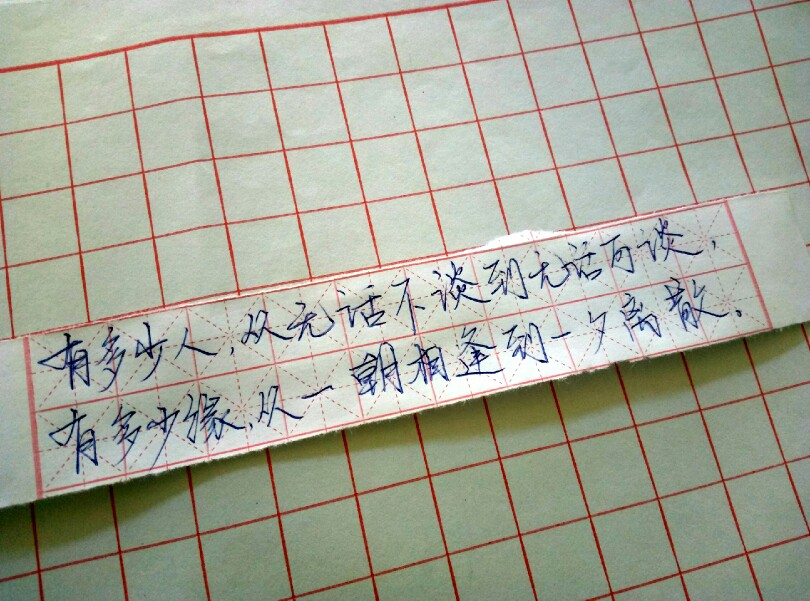 有多少人，从无话不谈到无话可谈，
有多少缘，从一朝相逢到一夕离散。